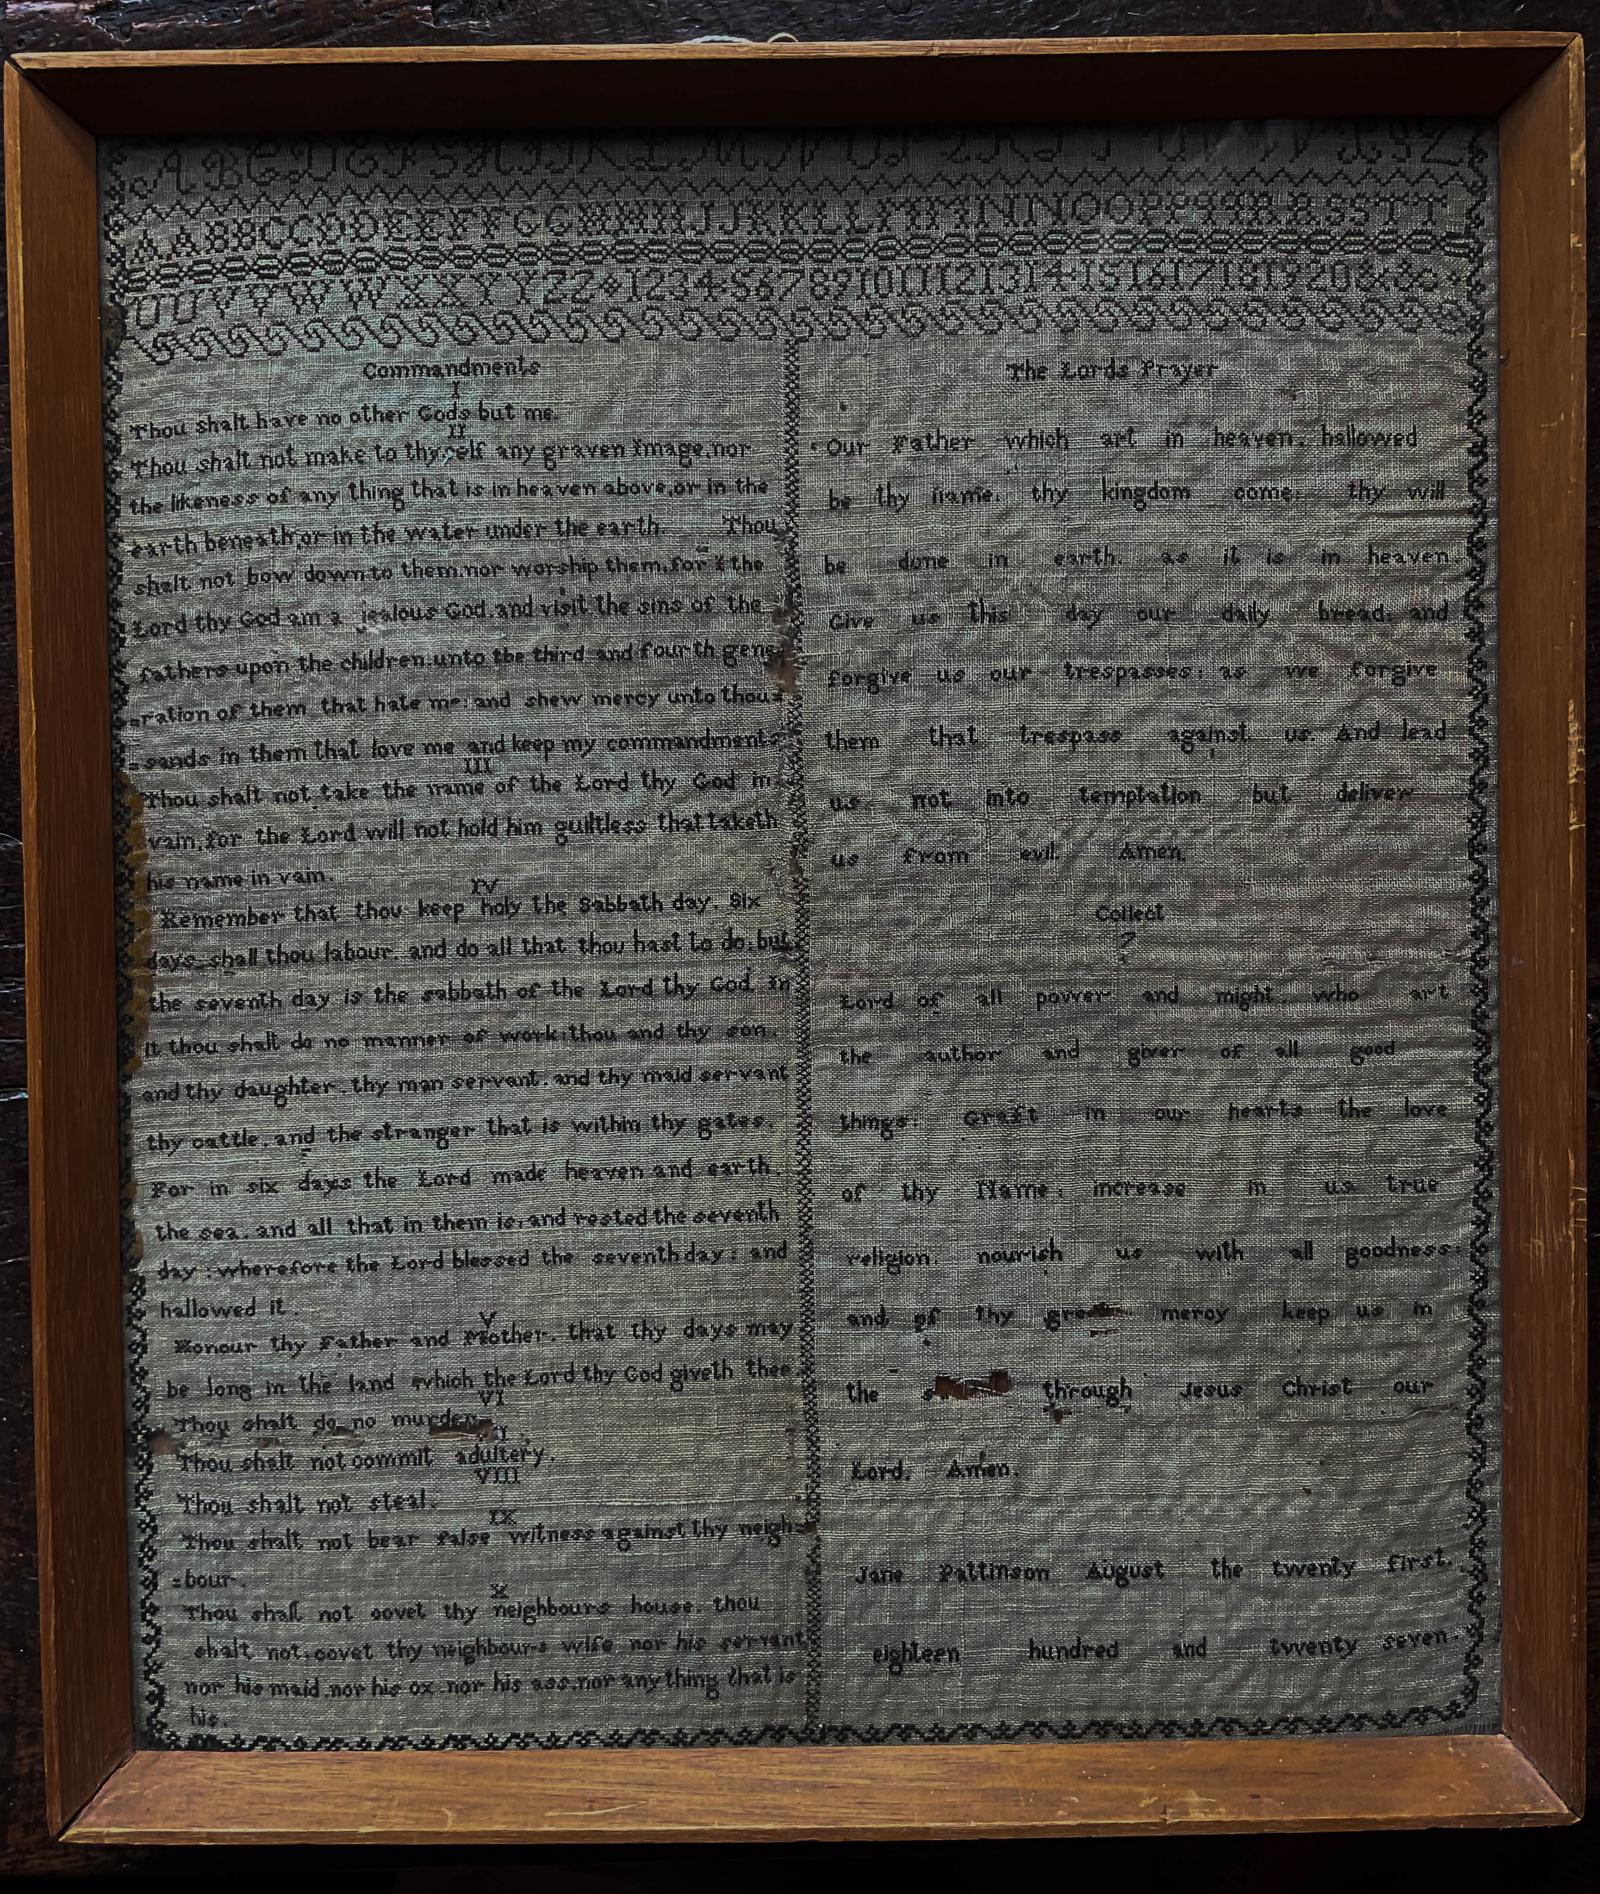 A B C D E F G H I J K L M N O P Q R S T U V W X Y Z
A A B B C C D D E E F F G G H H H J J K K L L M M N N O O P P Q Q R R S S T T
U U V V W W X X Y Y Z Z 1 2 3 4 5 6 7 8 9 10 11 12 13 14 15 16 17 18 19 20 & &c
Commandments
I
Thou shalt have no other Gods but me.
II
Thou shalt not make to thyself any graven Image, nor
the likeness of any thing that is in heaven above, or in the
earth beneath, or in the water under the earth. Thou
shalt not bow down to them, nor worship them, for I the
Lord thy God am a jealous God, and visit the sins of the
fathers upon the children unto the third and fourth gene=
=ration of them that hate me: and shew mercy unto thou=
=sands in them that love me and keep my commandments
III
Thou shalt not take the name of the Lord thy God in
vain, for the Lord will not hold him guiltless that taketh
his name in vain.
IV
Remember that thou keep holy the Sabbath day. Six
days shall thou labour. and do all that thou hast to do, but
the seventh day is the sabbath of the Lord thy God. In
it thou shalt do no manner of work: thou and thy son.
and thy daughter. thy man servant. and thy maid servant
thy cattle. and the stranger that is within thy gates.
For in six days the Lord made heaven and earth.
the sea. and all that in them is, and rested the seventh
day: wherefore the Lord blessed the seventh day: and
hallowed it.
V
Honour thy Father and Mother. that thy days may
be long in the land which the Lord thy God giveth thee.
VI
Thou shalt do no murder
Thou shalt not commit adultery.
VIII
Thou shalt not steal.
IX
Thou shalt not bear false witness against thy neigh=
=bour.
X
Thou shall not covet thy neighbours house. thou
shalt not covet thy neighbours wife nor his servant
nor his maid, nor his ox, nor his ass, nor any thing that is
his.
The Lords Prayer
Our Father which art in heaven. hallowed
be thy name. thy kingdom come. thy will
be done in earth. as it is in heaven.
Give us this day our daily bread. and
forgive us our trespasses: as we forgive
them that trespass against us. And lead
us not into temptation but deliver
us from evil. Amen.
Collect
Lord of all power and might. who art
the author and giver of all good
things: Graft in our hearts the love
of thy Name. increase in us true
religion. nourish us with all goodness:
and of thy mercy keep us in
the through Jesus Christ our
Lord. Amen.
Jane Pattinson August the twenty first.
eighteen hundred and twenty seven.